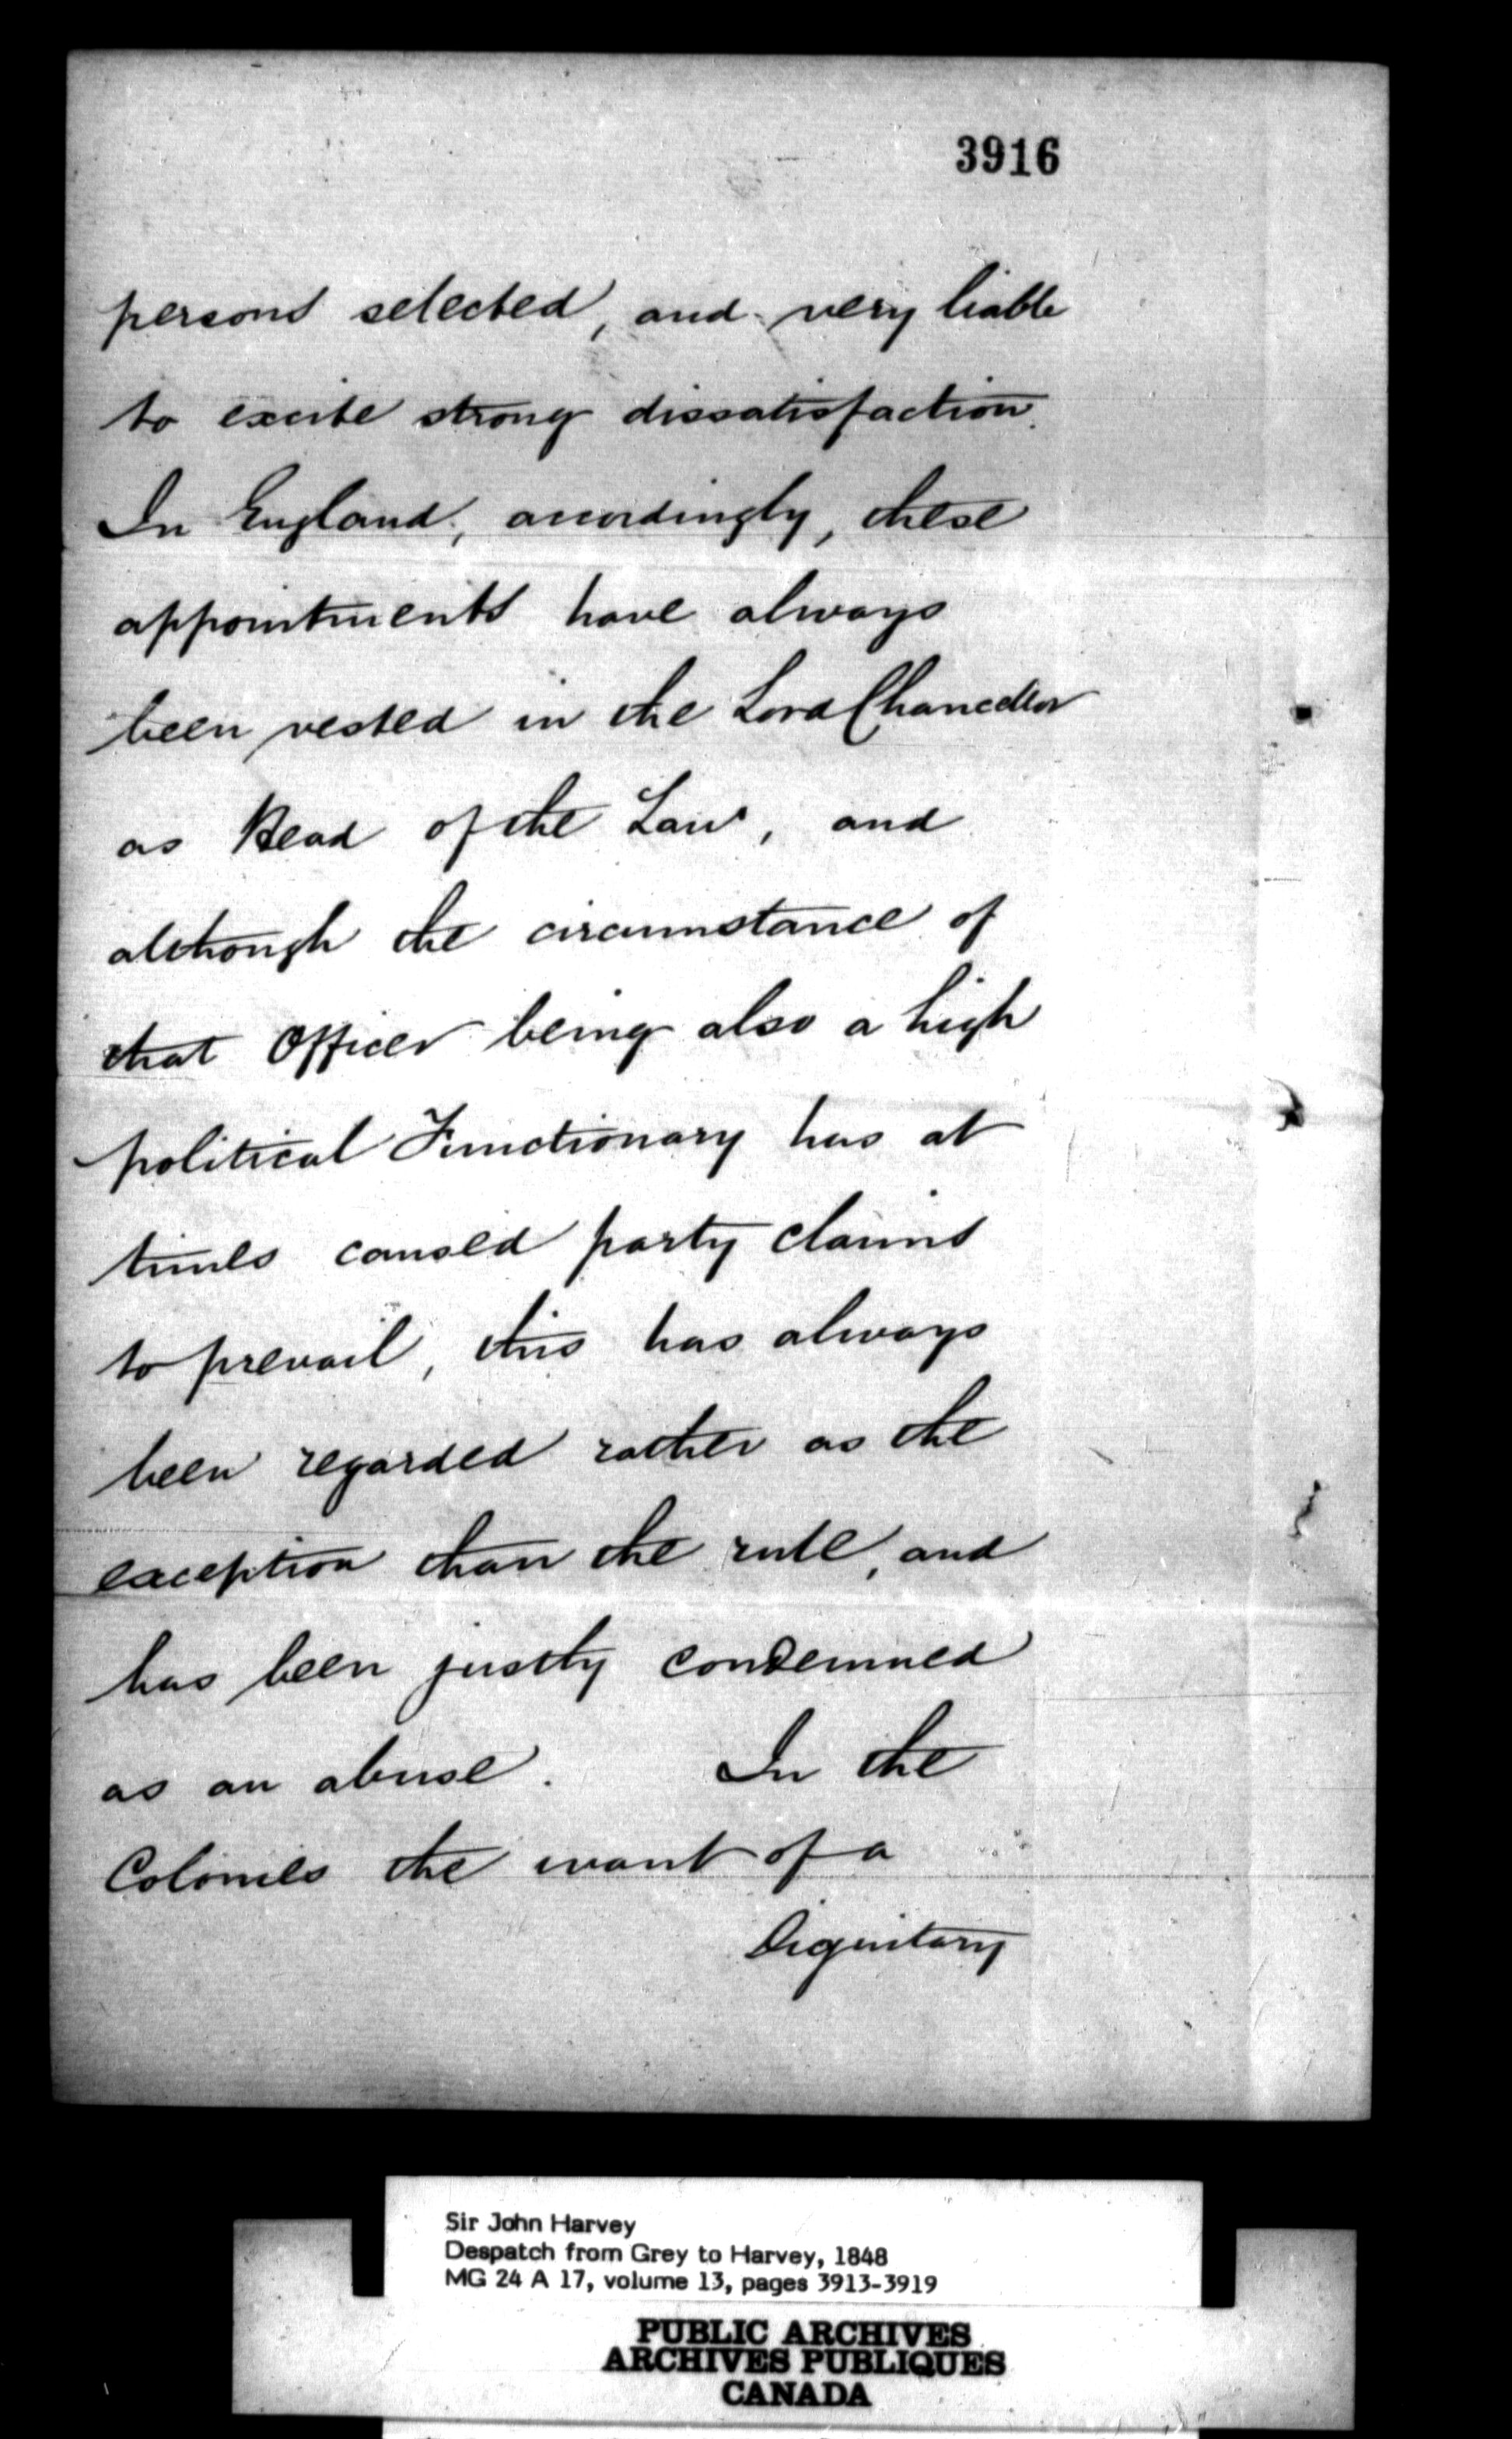 3916
persons selected, and very liable
to excite strong dissatisfaction.
In England, accordingly, these
appointments have always
been vested in the Lord Chancellor
as Head of the Law, and
although the circumstance of
that Officer being also a high
political Functionary has at
times caused party claims
to prevail, this has always
been regarded rather as the
exception than the rule, and
has been justly condemned
as an abuse. In the
Colonies the want of a
Dignitary
Sir John Harvey
Despatch from Grey to Harvey, 1848
MG 24 A 17, volume 13, pages 3913-3919
PUBLIC ARCHIVES
ARCHIVES PUBLIQUES
CANADA